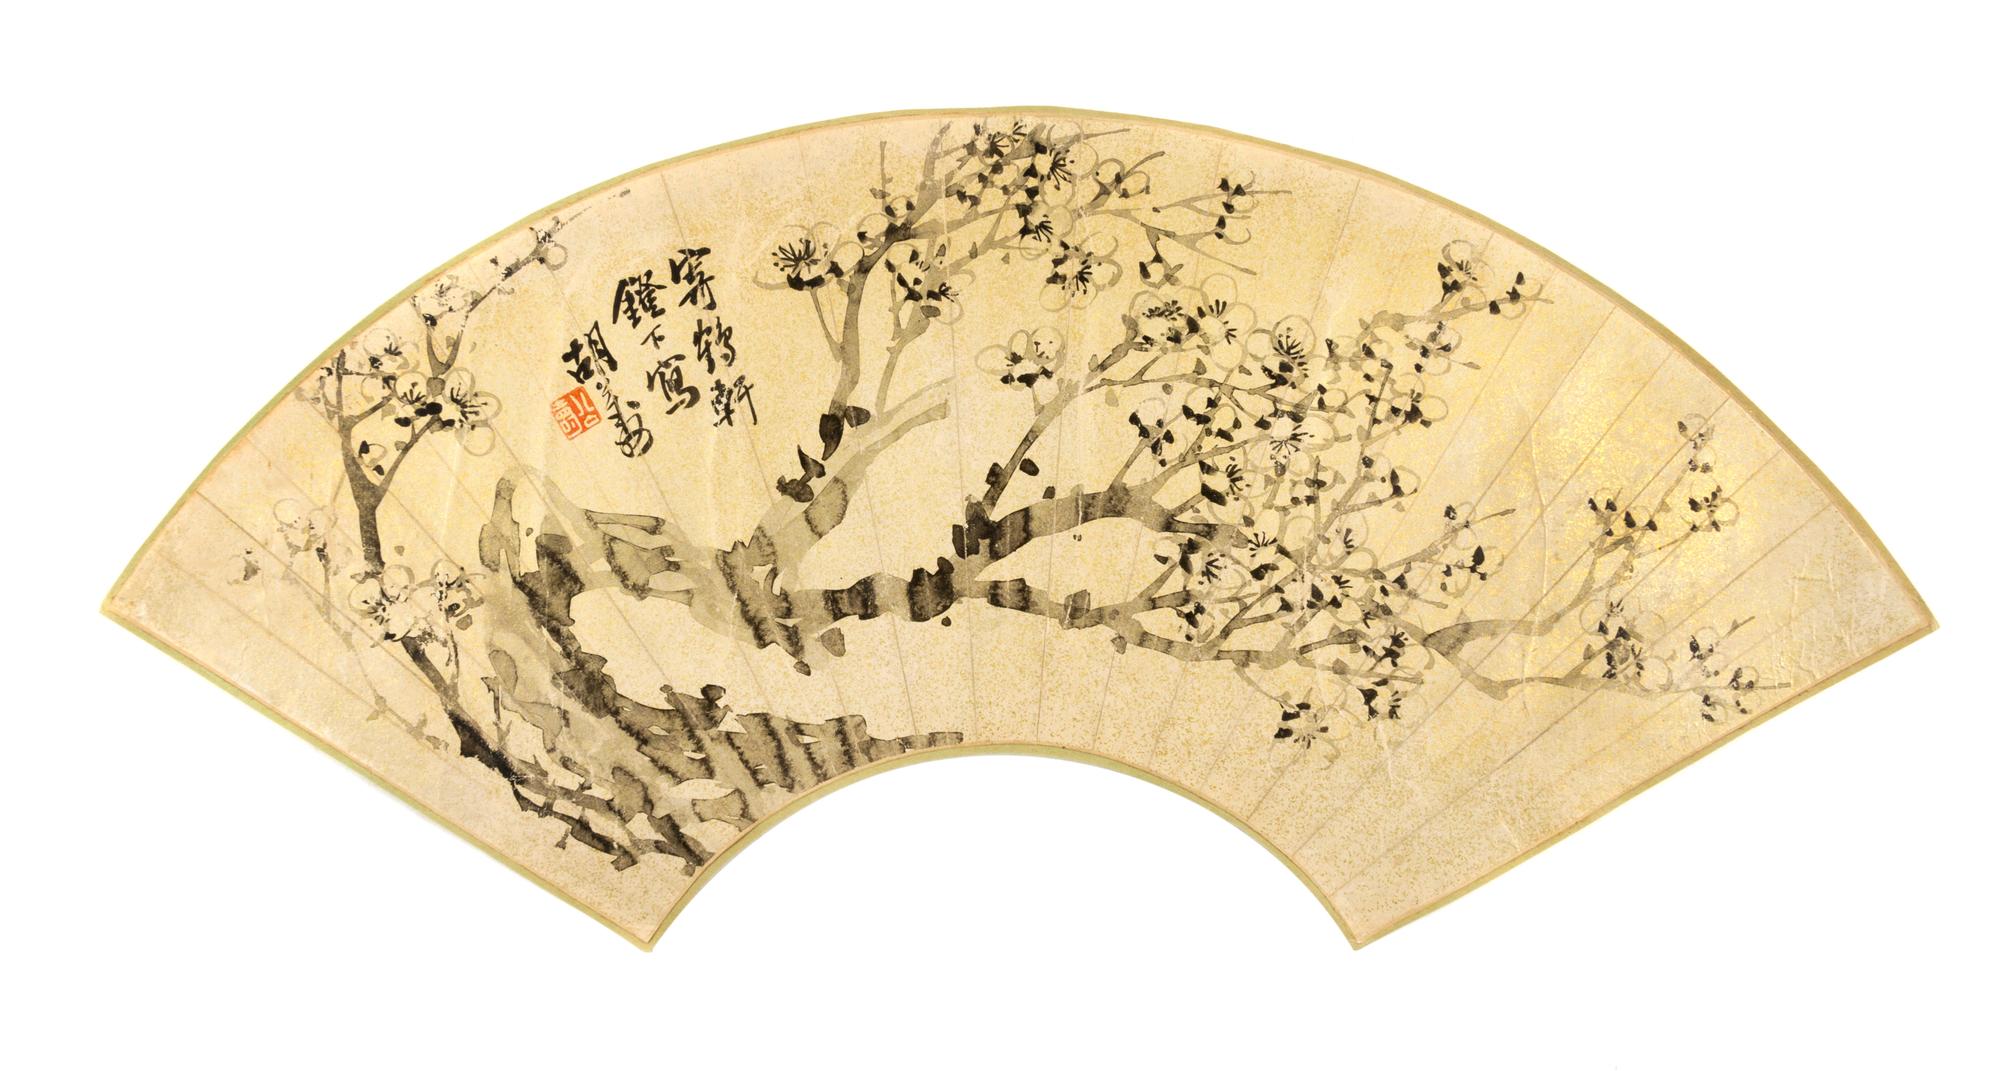 寄鶴軒
鐙下寫
胡公壽
公壽